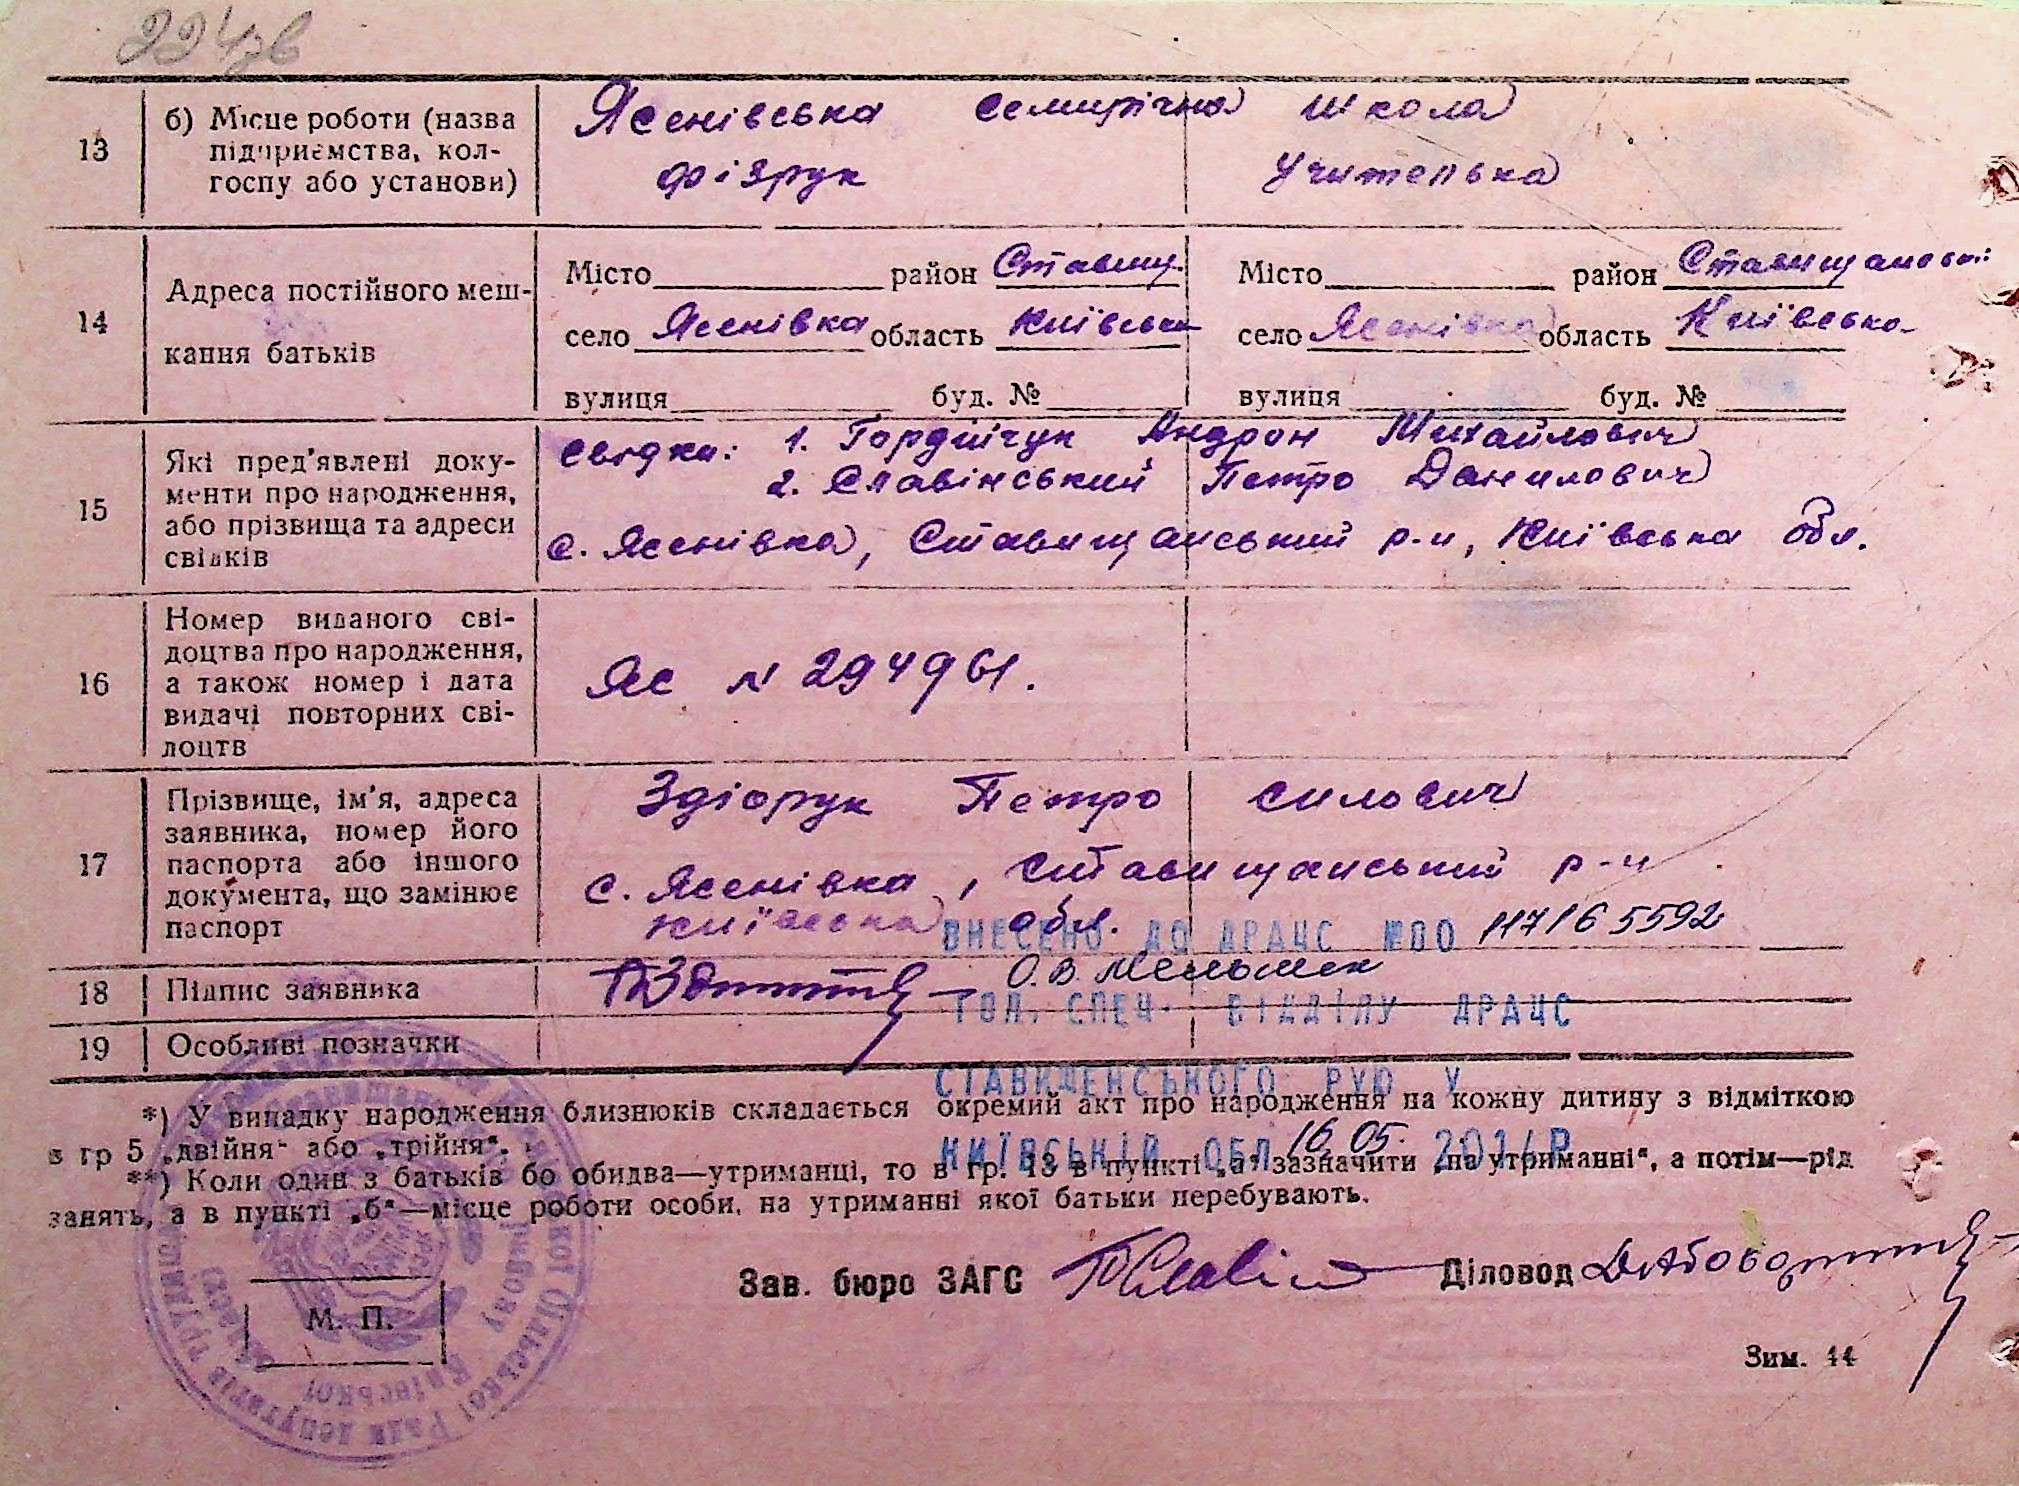 224зв
13
б) Місце роботи (назва
підприємства, кол-
госпу або установи)
Ясенівська семирічна школа
фізрук
учителька
14
Адреса постійного меш-
кання батьків
Місто район Ставищ.
село Ясенівка область Київська
вулиця буд. №
Місто район Ставищанський
село Ясенівка область Київська
вулиця буд. №
15
Які пред'явлені доку-
менти про народження,
або прізвища та адреси
свідків
Свідки: 1. Гордійчук Андрон Михайлович
2. Славінський Петро Данилович
с. Ясенівка, Ставищанський р-н, Київська обл.
16
Номер виданого сві-
доцтва про народження,
а також номер і дата
видачі повторних сві-
доцтв
Яс N 294961.
17
Прізвище, ім'я, адреса
заявника, номер його
паспорта або іншого
документа, що замінює
паспорт
Здіорук Петро Силович
с. Ясенівка, Ставищанський р-н
Київська обл.
ВНЕСЕНО ДО ДРАЦС №ПО 117165592
18
Підпис заявника
О.В. Мельник
ГОЛ. СПЕЦ. ВІДДІЛУ ДРАЦС
19
Особливі позначки
СТАВИЩЕНСЬКОГО РУЮ У
*) У випадку народження близнюків складається окремий акт про народження на кожну дитину з відміткою
в гр 5 „двійня“ або „трійня“.
КИЇВСЬКІЙ ОБЛ 16.05. 201 Р
**) Коли один з батьків бо обидва—утриманці, то в гр. 13 в пункті „а“ зазначити „на утриманні“, а потім—рід
занять, а в пункті „б“—місце роботи особи, на утриманні якої батьки перебувають.
Зав. бюро ЗАГС
Діловод
М. П.
Зим. 44